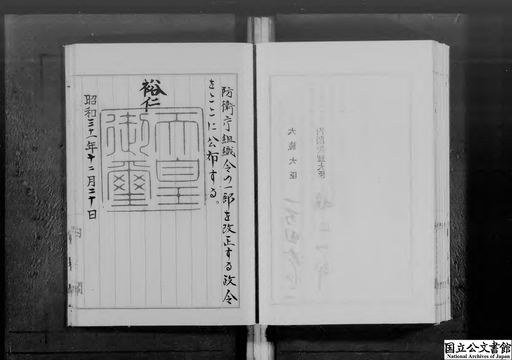 防衛庁組織令の一部を改正する政令
をここに公布する。
裕仁
天皇
御璽
昭和三十一年十二月二十日
内閣総理大臣
大蔵大臣
国立公文書館
National Archives of Japan